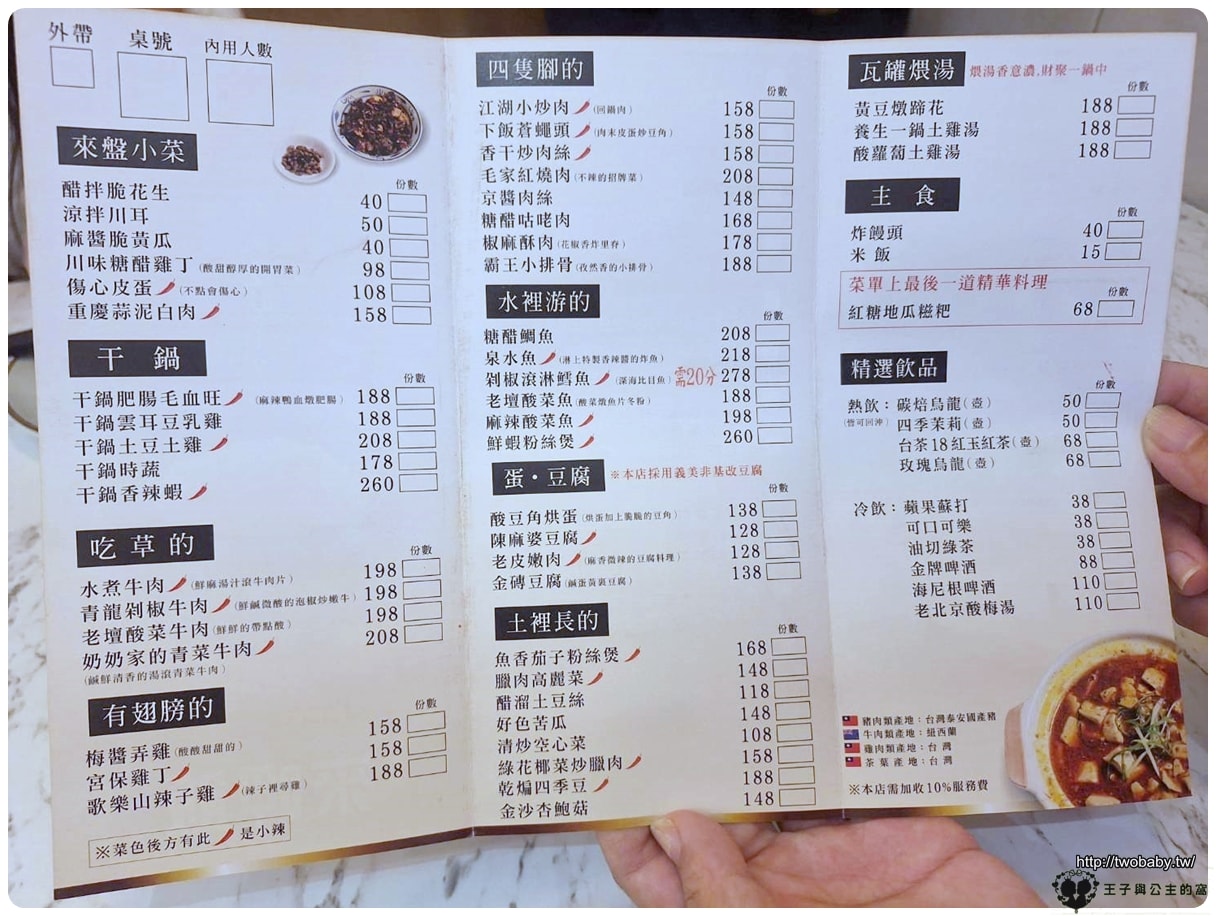 外帶 桌號 內用人數
來盤小菜
份數
醋拌脆花生 40
涼拌川耳 50
麻醬脆黃瓜 40
川味糖醋雞丁(酸甜醇厚的開胃菜) 98
傷心皮蛋(不點會傷心) 108
重慶蒜泥白肉 158
干鍋
份數
干鍋肥腸毛血旺(麻辣鴨血燉肥腸) 188
干鍋雲耳豆乳雞 188
干鍋土豆土雞 208
干鍋時蔬 178
干鍋香辣蝦 260
吃草的
份數
水煮牛肉(鮮麻湯汁滾牛肉片) 198
青龍剁椒牛肉(鮮鹹微酸的泡椒炒嫩牛) 198
老壇酸菜牛肉(鮮鮮的帶點酸) 198
奶奶家的青菜牛肉 208
(鹹鮮清香的湯滾青菜牛肉)
有翅膀的
份數
梅醬弄雞(酸酸甜甜的) 158
宮保雞丁 158
歌樂山辣子雞(辣子裡尋雞) 188
※菜色後方有此 是小辣
四隻腳的
份數
江湖小炒肉(回鍋肉) 158
下飯蒼蠅頭(肉末皮蛋炒豆角) 158
香干炒肉絲 158
毛家紅燒肉(不辣的招牌菜) 208
京醬肉絲 148
糖醋咕咾肉 168
椒麻酥肉(花椒香炸里脊) 178
霸王小排骨(孜然香的小排骨) 188
水裡游的
份數
糖醋鯛魚 208
泉水魚(淋上特製香辣醬的炸魚) 218
剁椒滾淋鱈魚(深海比目魚) 需20分 278
老壇酸菜魚(酸菜燉魚片冬粉) 188
麻辣酸菜魚 198
鮮蝦粉絲煲 260
蛋・豆腐 ※本店採用義美非基改豆腐
份數
酸豆角烘蛋(烘蛋加上脆脆的豆角) 138
陳麻婆豆腐 128
老皮嫩肉(麻香微辣的豆腐料理) 128
金磚豆腐(鹹蛋黃裹豆腐) 138
土裡長的
份數
魚香茄子粉絲煲 168
臘肉高麗菜 148
醋溜土豆絲 118
好色苦瓜 148
清炒空心菜 108
綠花椰菜炒臘肉 158
乾煸四季豆 188
金沙杏鮑菇 148
瓦罐煨湯 煨湯香意濃,財聚一鍋中
份數
黃豆燉蹄花 188
養生一鍋土雞湯 188
酸蘿蔔土雞湯 188
主食
份數
炸饅頭 40
米飯 15
菜單上最後一道精華料理
份數
紅糖地瓜糍粑 68
精選飲品
份數
熱飲：碳焙烏龍(壺) 50
(皆可回沖) 四季茉莉(壺) 50
台茶18紅玉紅茶(壺) 68
玫瑰烏龍(壺) 68
冷飲：蘋果蘇打 38
可口可樂 38
油切綠茶 38
金牌啤酒 88
海尼根啤酒 110
老北京酸梅湯 110
豬肉類產地：台灣泰安國產豬
牛肉類產地：紐西蘭
雞肉類產地：台灣
茶葉產地：台灣
※本店需加收10%服務費
http://twobaby.tw/
王子與公主的窩